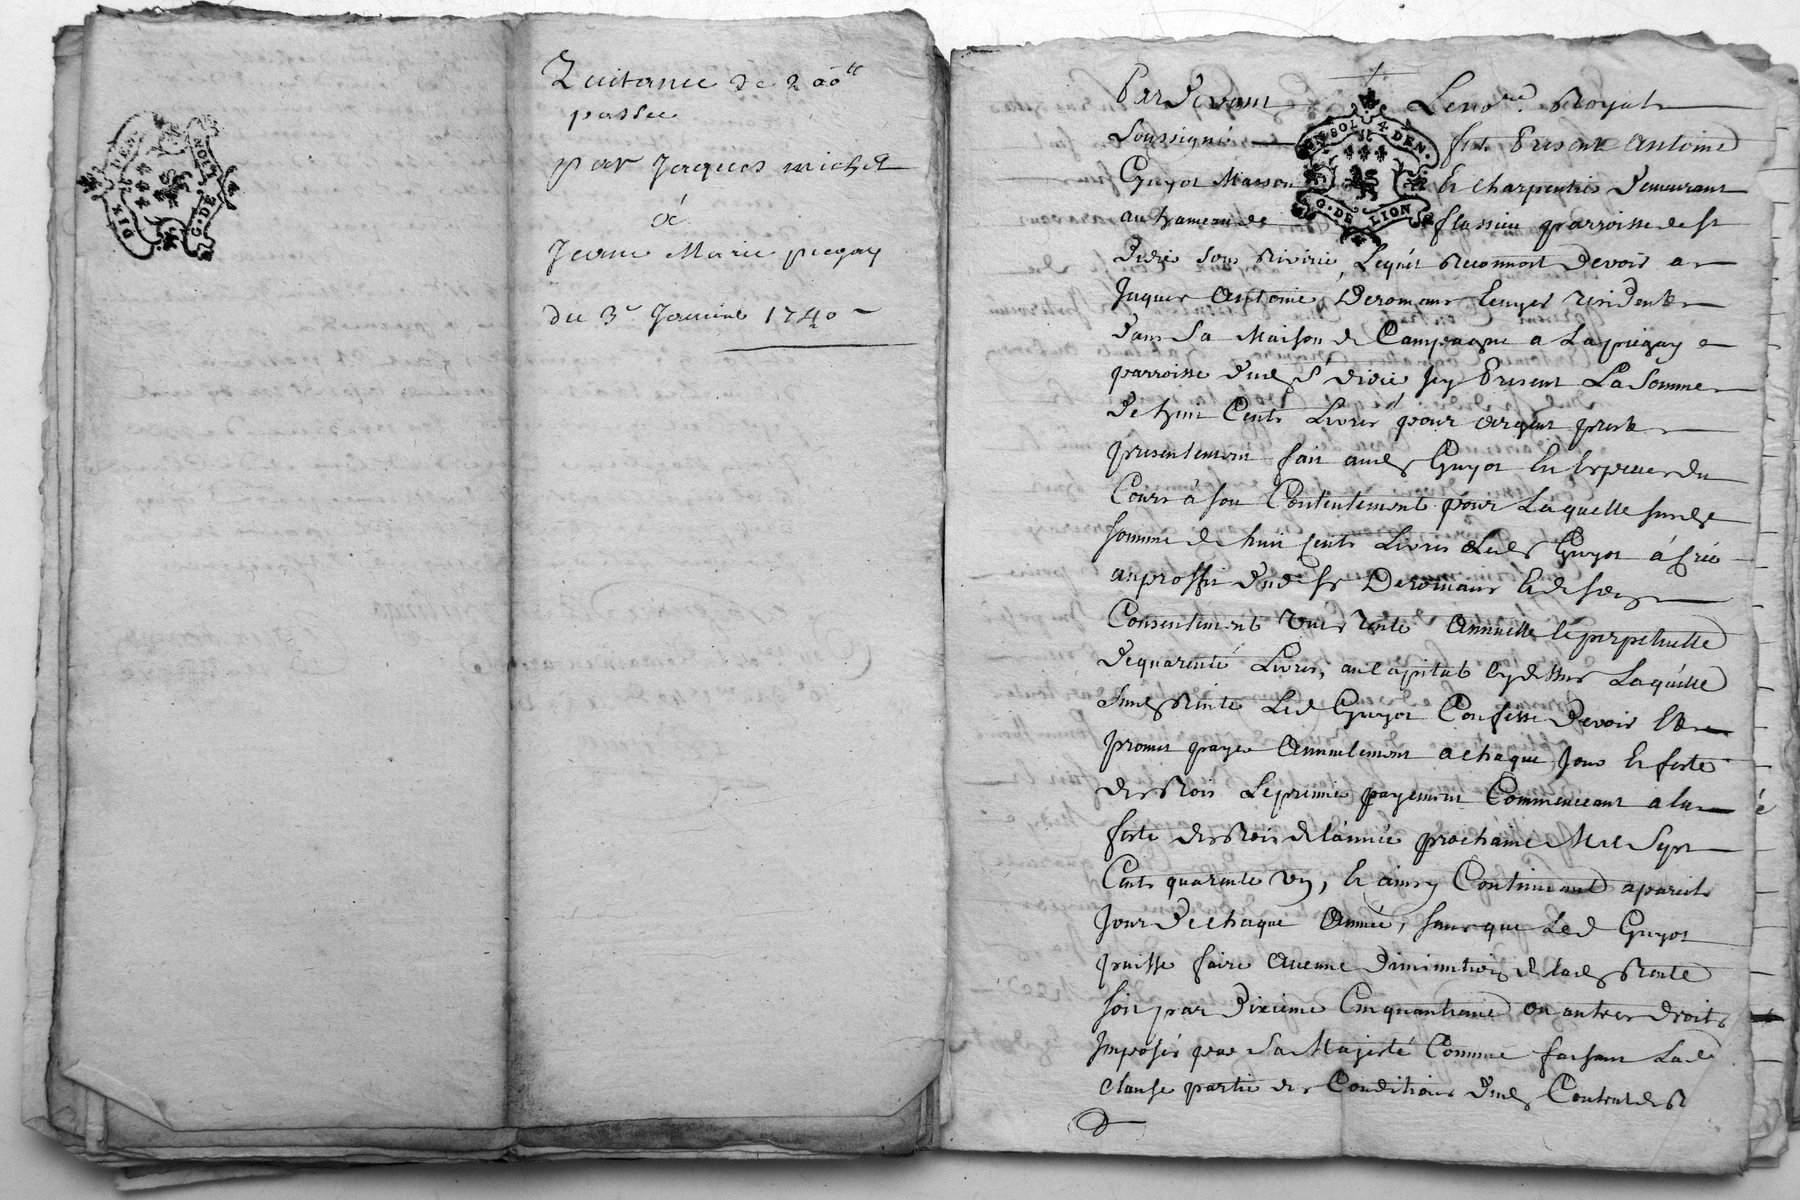 DIX DEN
G. DE LION
Quitance de 200ᵗᵗ
passée
par Jacques michel
à
Jeanne Marie piegay
du 3ᵉ Janvier 1740
Pardevant Le noʳᵉ Royal
Soussigné fut Present Antoine
SOL 4 DEN.
Guyot Masson Et Charpentié Demeurant
au hameau de flassieu parroisse de st
G. DE LION
Didié sous Riverie, Lequel Reconnoit Devoir a
Jaques Antoine Deromans Ecuyer residents
dans sa Maison de Campagne a La piegay
parroisse dud st didié Jcy Present La Somme
de huit Cents Livres pour argent presté
presentement fait aud Guyot En Especes du
Cours à son Contentement pour Laquelle susde
somme de huit cents Livres Led Guyot à Créé
au proffit dud sr Deromans Et de
Consentement Une Rente Annuelle Et perpetuelle
de quarente Livres, au Capital Cy dessus Laquelle
susd Rente Led Guyot Confesse Devoir Et
promet payer Annuelement a chaque Jour Et feste
des Rois Le premié payement Commenceant a la
feste des Rois de l'année prochaine Mil Sept
Cents quarente Un, Et ainsy Continuant a pareil
Jour de chaque Année, sans que Led Guyot
puisse faire Aucune diminution de lad Rente
soit par Dixieme Cinquantieme ou autres droits
Imposés par Sa Majesté Comme faisant Lad
clause partie des Conditions dud Contract de R